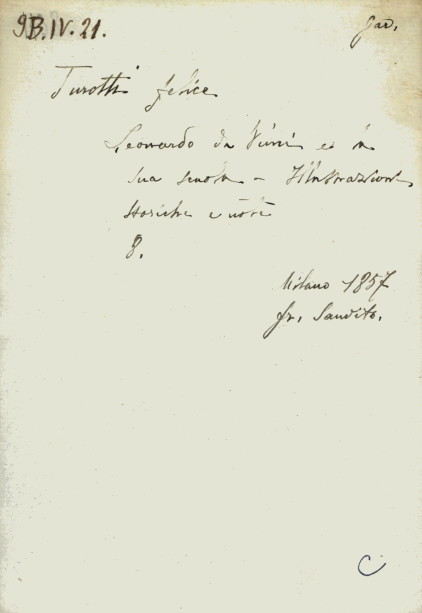 9B.IV.21.
gav.
Turotti Felice
Leonardo da Vinci e la
sua scuola - Illustrazioni
storiche e note
8.
Milano 1857
fr. Sanvito.
C